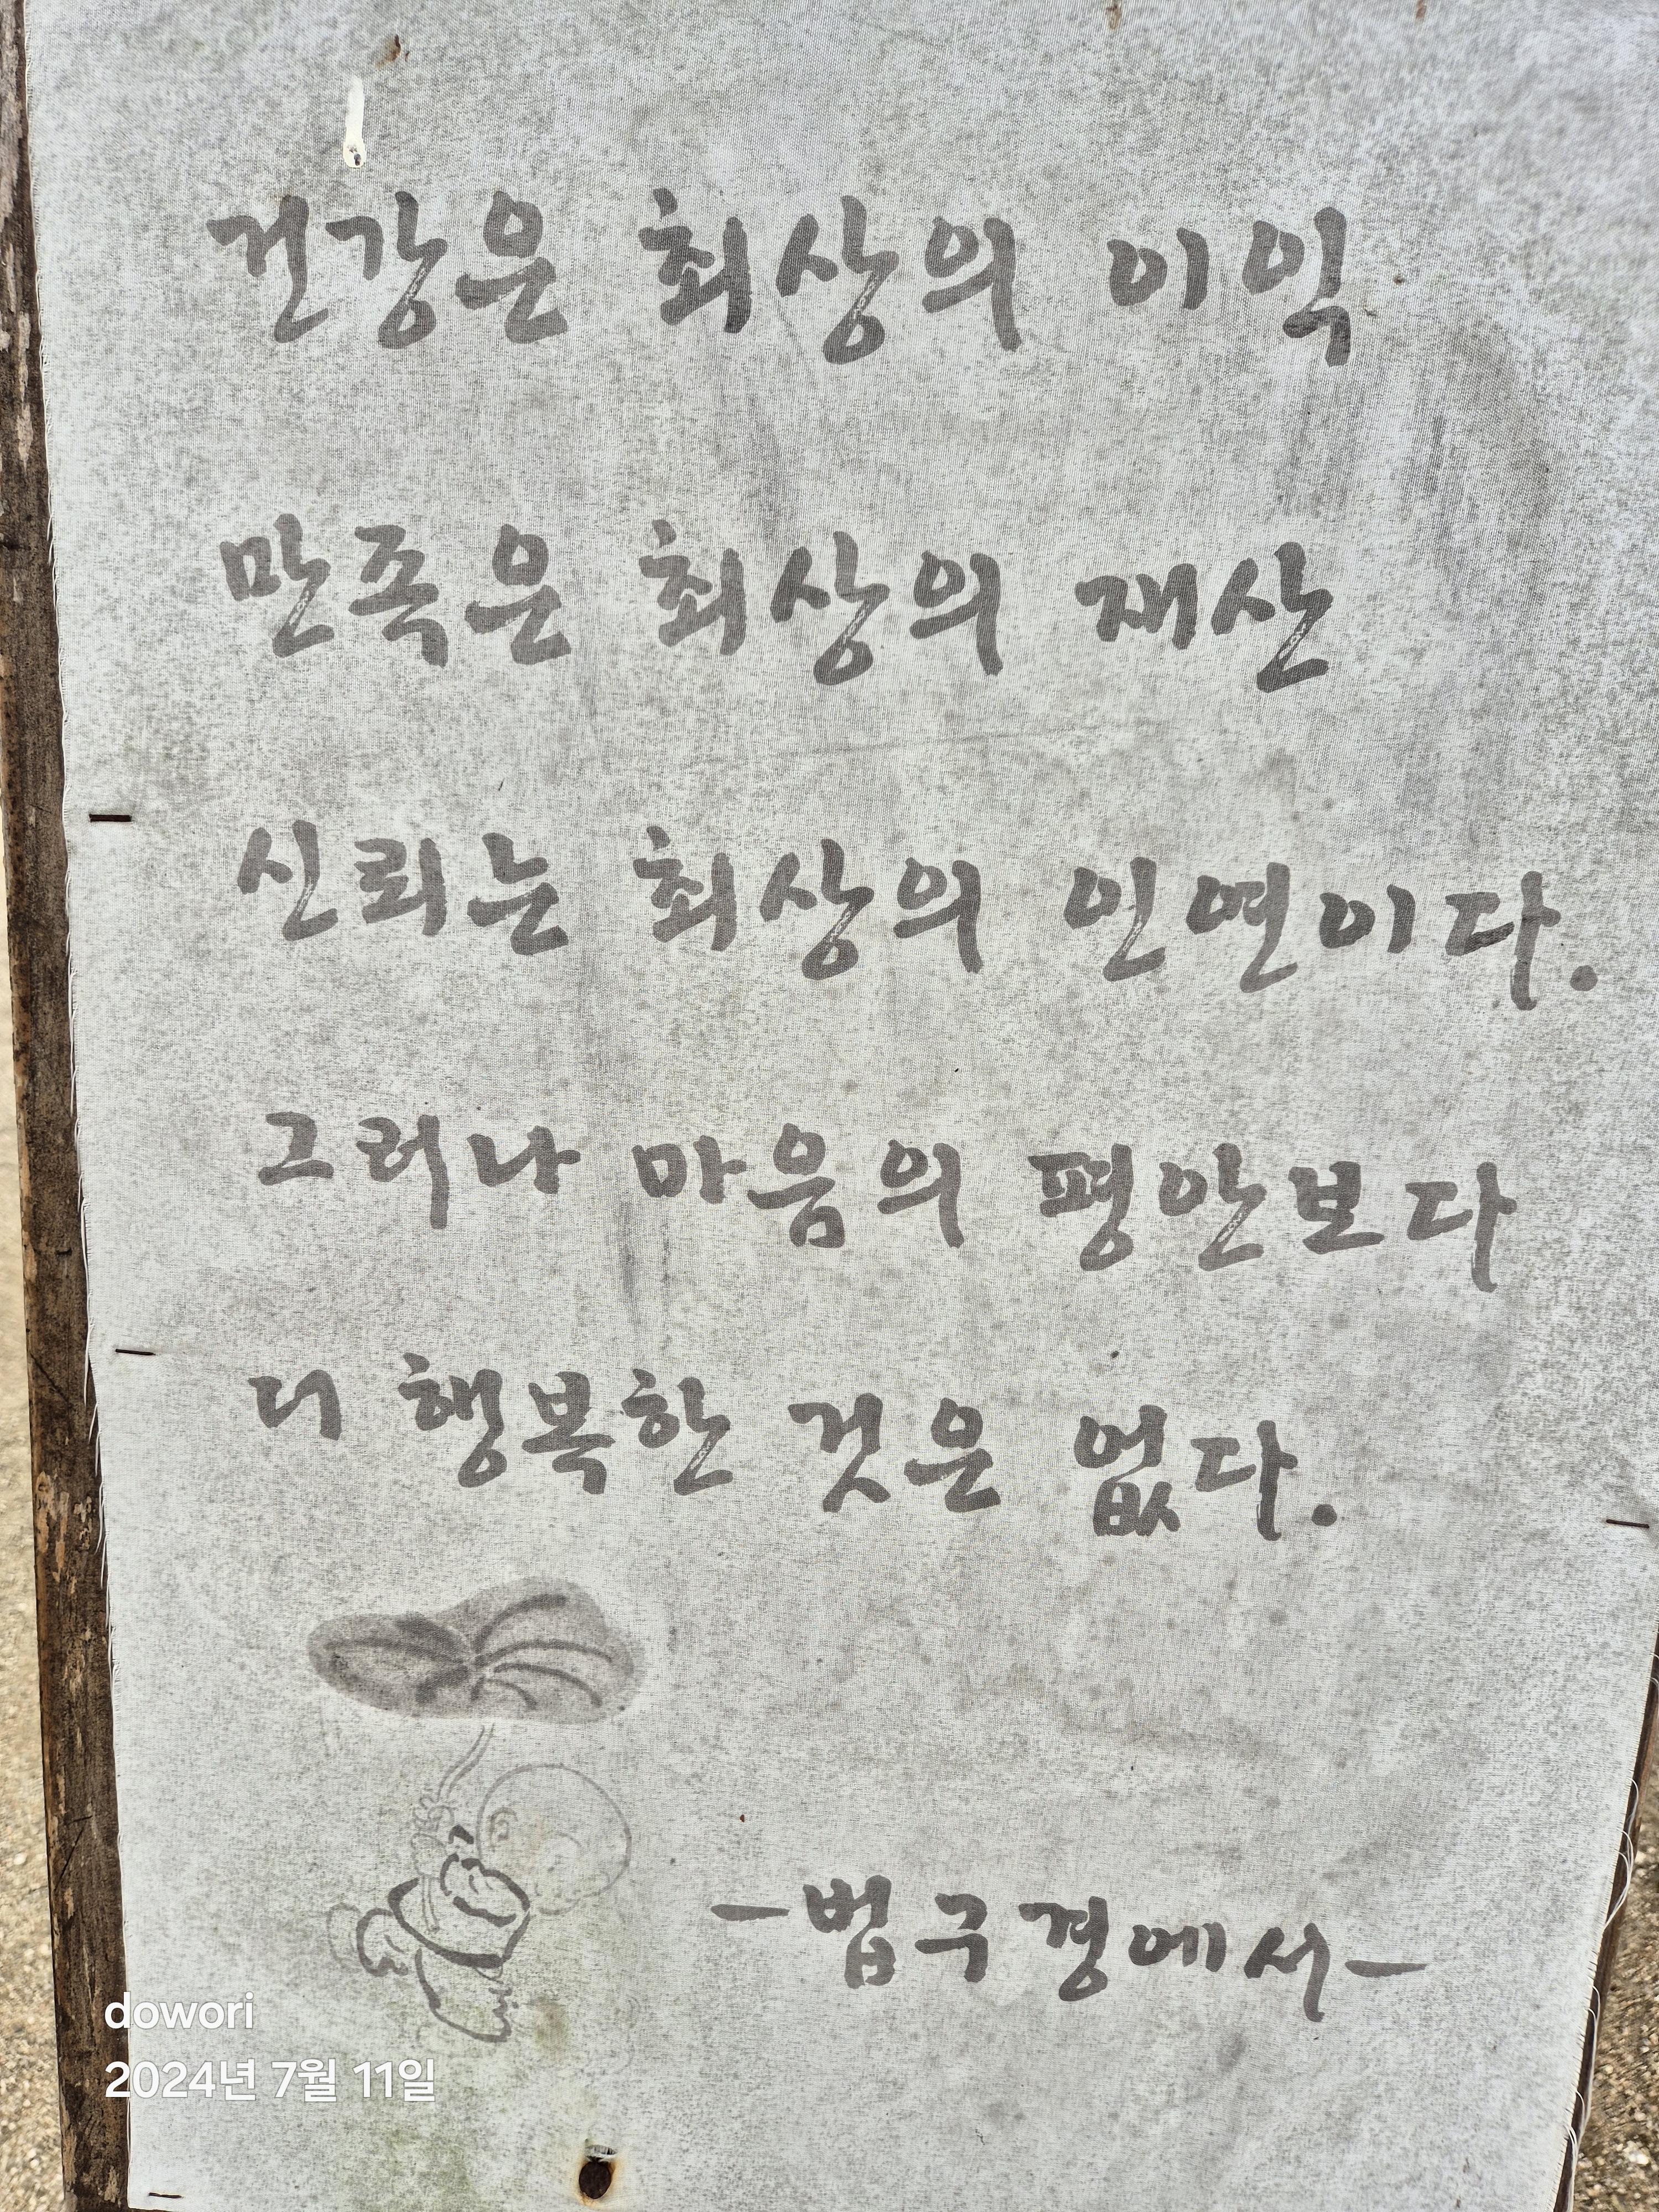 건강은 최상의 이익
만족은 최상의 재산
신뢰는 최상의 인연이다.
그러나 마음의 평안보다
더 행복한 것은 없다.
-법구경에서-
dowori
2024년 7월 11일